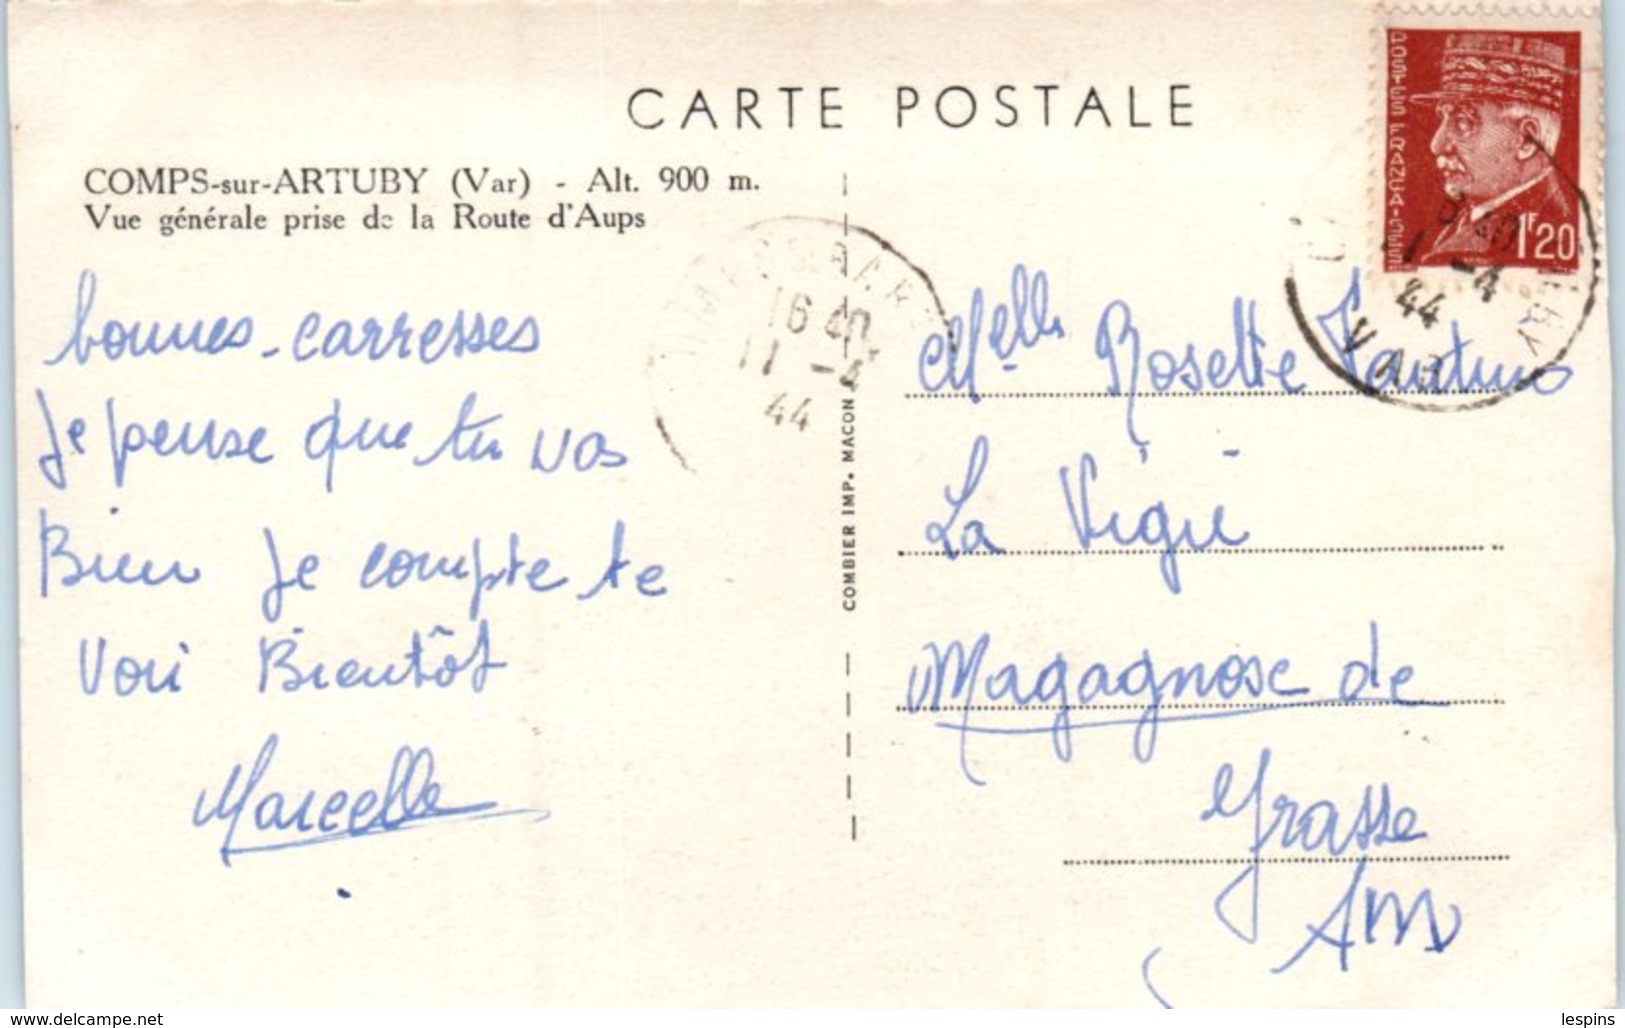 CARTE POSTALE
COMPS-sur-ARTUBY (Var) - Alt. 900 m.
Vue générale prise de la Route d'Aups
bonnes carresses
Je pense que tu vas
Bien Je compte te
voir Bientôt
Marcelle
COMBIER IMP. MACON
16 40
11 -4
44
POSTES FRANÇAISES
1F20
-4
44
VAR
Melle Rosette
La Vigie
Magagnosc de
Grasse
AM
www.delcampe.net
lespins